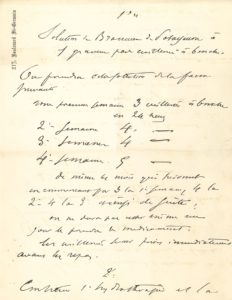 217, Boulevard St-Germain
1°
Solution de Bromure de Potassium à
1 gramme par cuillerée à bouche.
On prendra cette solution de la façon
suivante
une première semaine 3 cuillerées à bouche
en 24 heures
2e semaine 4. —
3e semaine 4. —
4e semaine 5 —
de même le mois qui suivront
en commençant par 3 la 1e semaine, 4 la
2e 4 la 3e et ainsi de suite,
on ne devra pas rester un
jour sans prendre le médicament.
les cuillerées seront prises immédiatement
avant les repas.
2°
et la